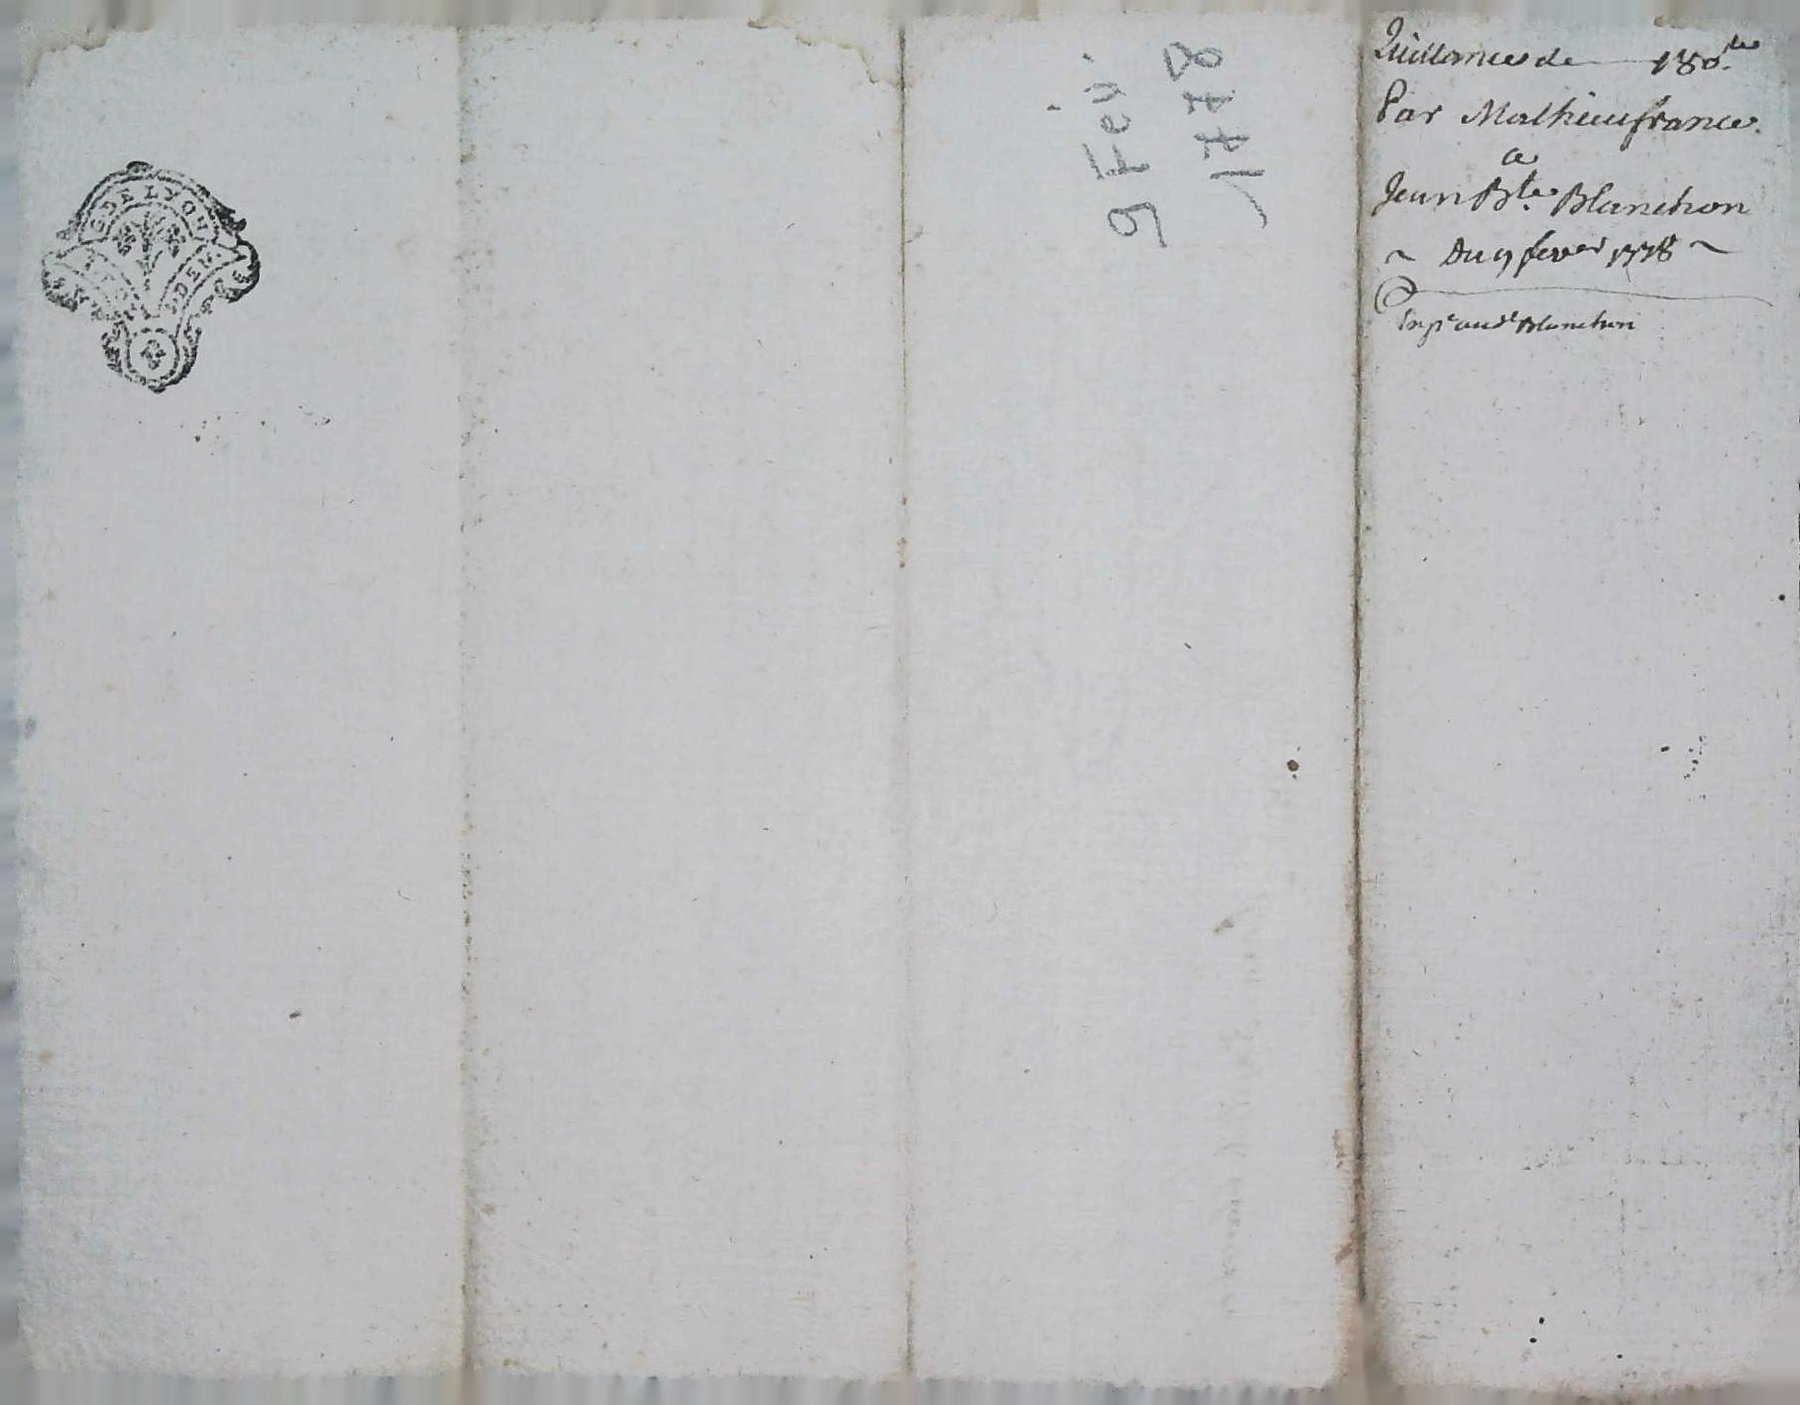 G. DE LYON
DEN.
9 Fev.
1778
Quittance de — 180.lt
Par Mathieu france.
a
Jean Bte. Blanchon
~ Du 9 fevrer 1778 ~
Blanchon